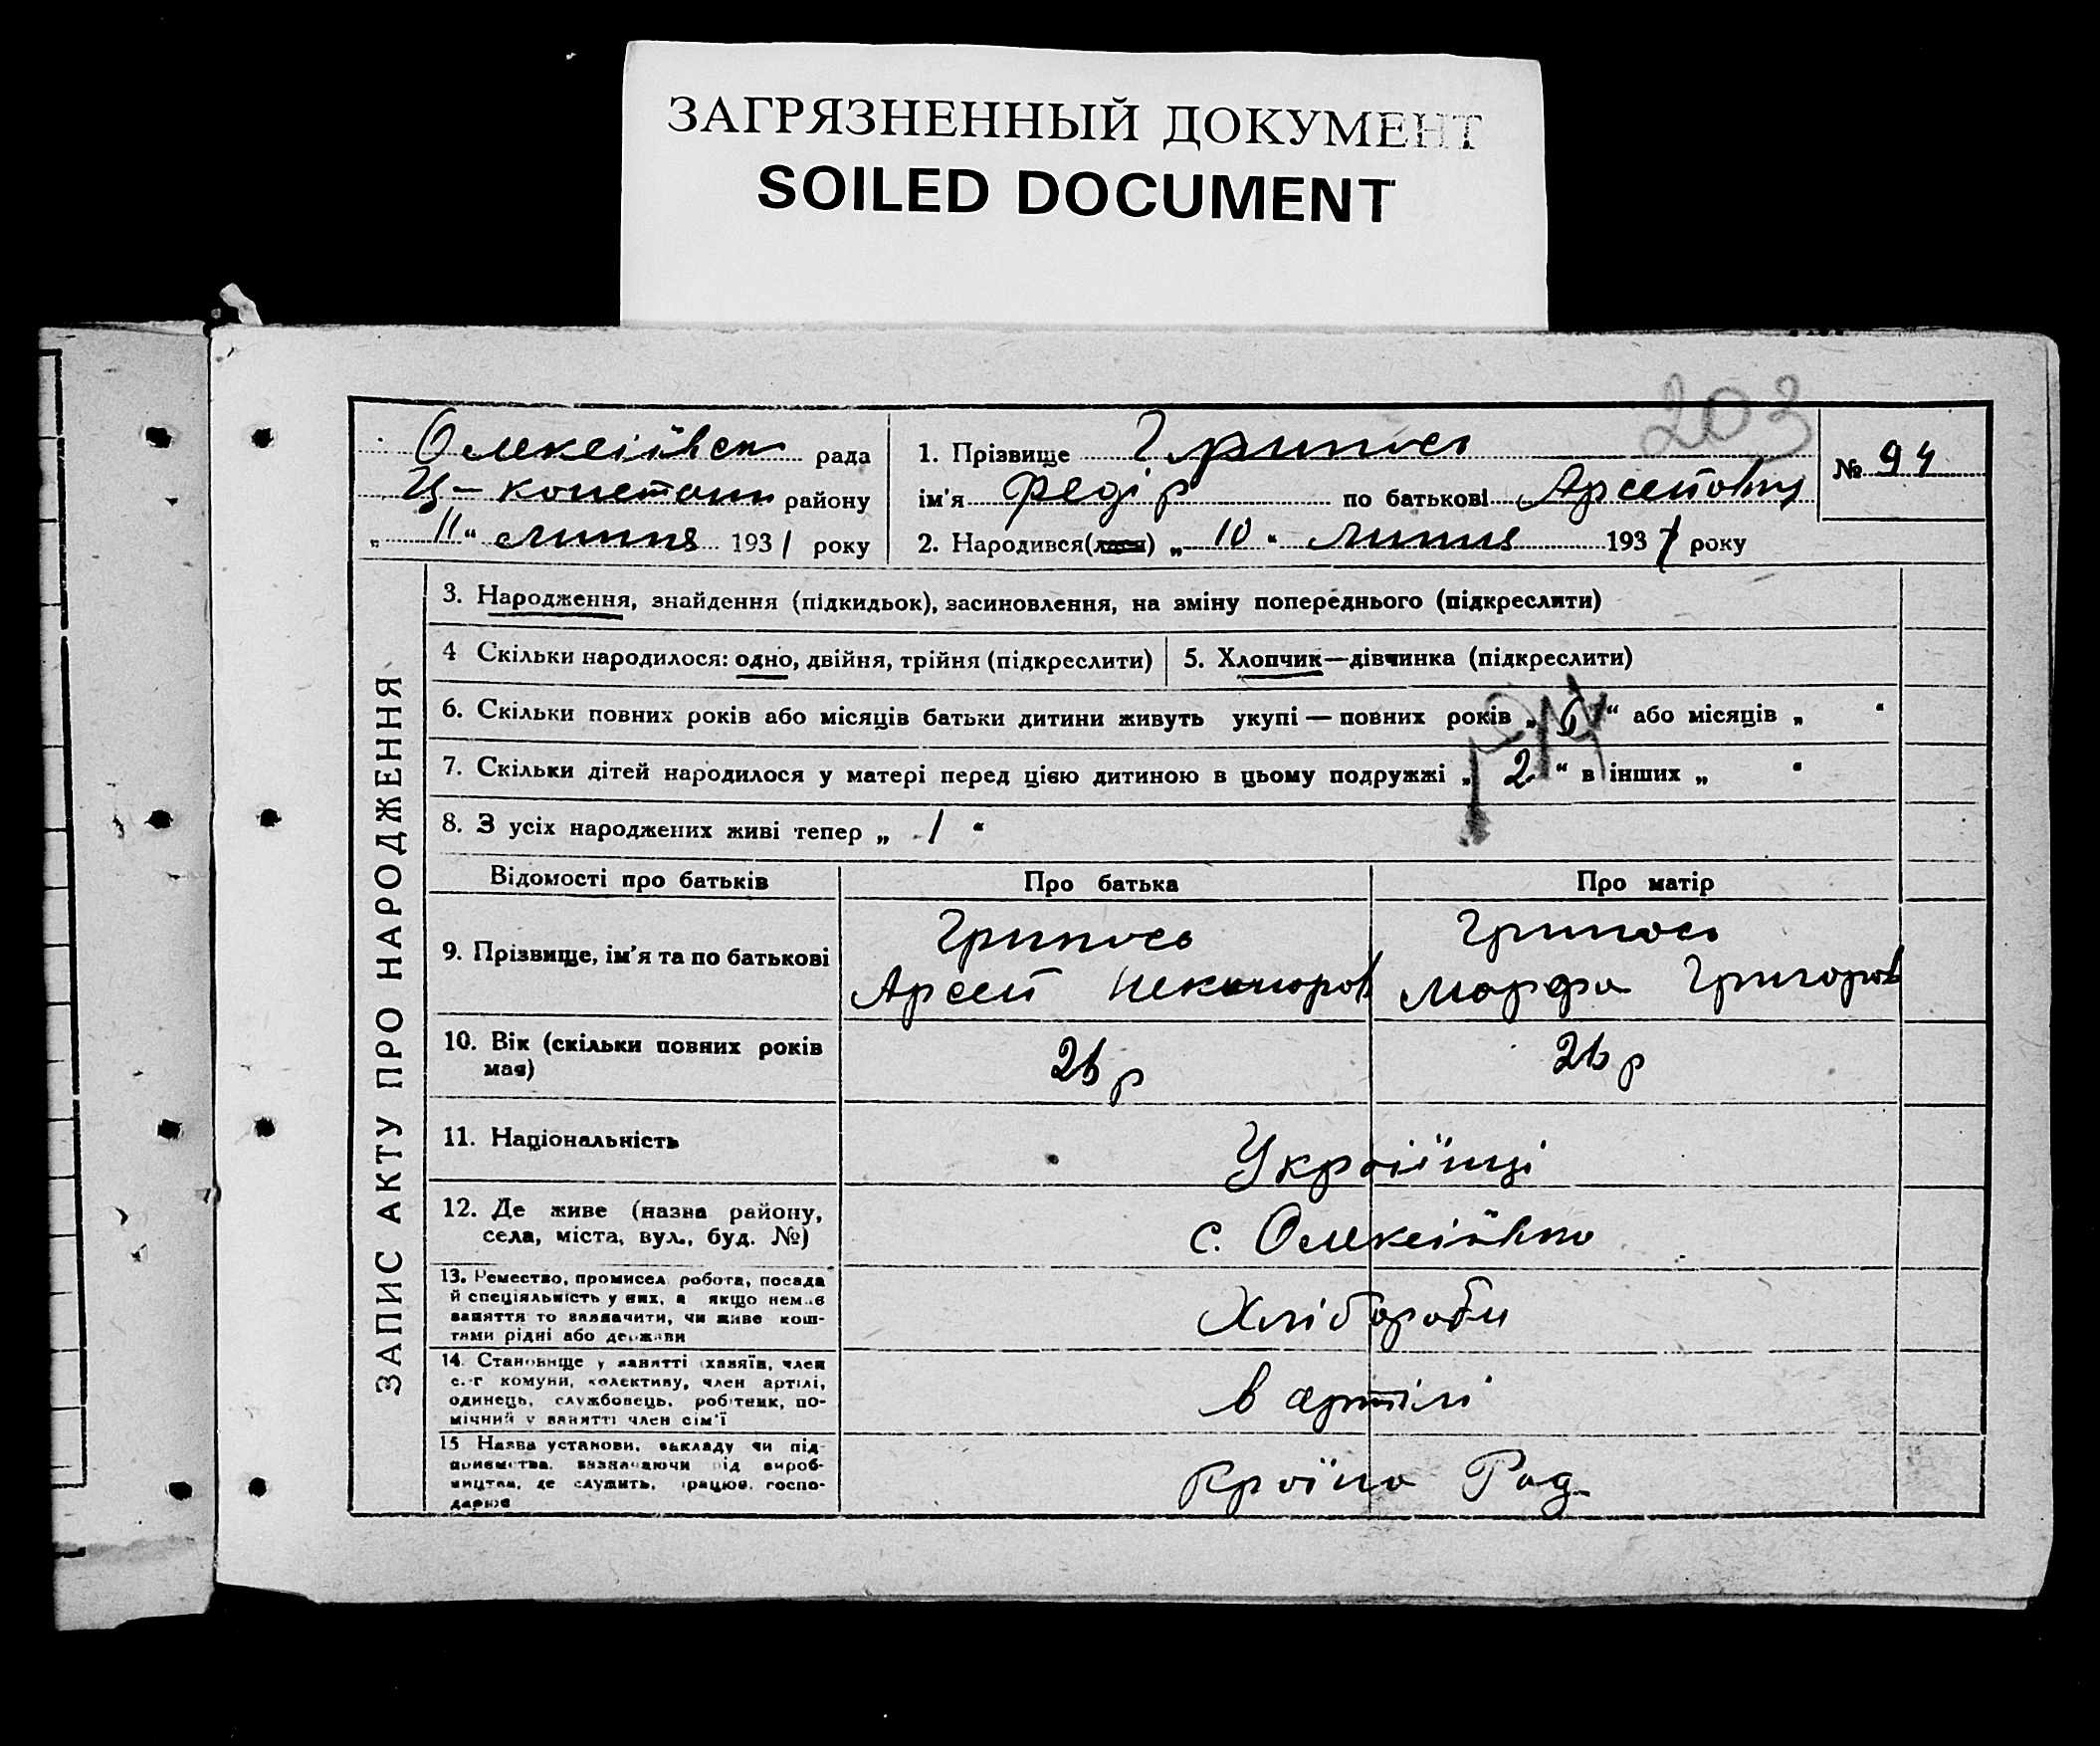 ЗАГРЯЗНЕННЫЙ ДОКУМЕНТ
SOILED DOCUMENT
203
Олексіївськ рада
Ц-констант району
„ 11 “ липня 1931 року
1. Прізвище Грипась
ім'я Федір по батькові Арсентович
2. Народився(лася) „ 10 “ липня 1931 року
№ 94
ЗАПИС АКТУ ПРО НАРОДЖЕННЯ
3. Народження, знайдення (підкидьок), засиновлення, на зміну попереднього (підкреслити)
4 Скільки народилося: одно, двійня, трійня (підкреслити)
5. Хлопчик—дівчинка (підкреслити)
6. Скільки повних років або місяців батьки дитини живуть укупі — повних років „ “ або місяців „ “
7. Скільки дітей народилося у матері перед цією дитиною в цьому подружжі „ 2 “ в інших „ “
8. З усіх народжених живі тепер „ 1 “
Відомості про батьків Про батька Про матір
9. Прізвище, ім'я та по батькові
Грипась
Арсент
Грипась
Марфа Григоров
10. Вік (скільки повних років має)
26 р
26 р
11. Національність
Українці
12. Де живе (назва району,
села, міста, вул., буд. №)
с. Олексіївка
13. Ремество, промисел, робота, посада
й спеціяльність у них, а якщо немає
заняття то зазначити, чи живе кош-
тами рідні або держави
Хлібороби
14. Становище у занятті (хазяїн, член
с.-г комуни, колективу, член артілі,
одинець, службовець, робітник, по-
мічний у занятті член сім'ї
в артілі
15 Назва установи, закладу чи під-
приємства, зазначаючи рід вироб-
ництва, де служить, працює, госпо-
дарює
Країна Рад